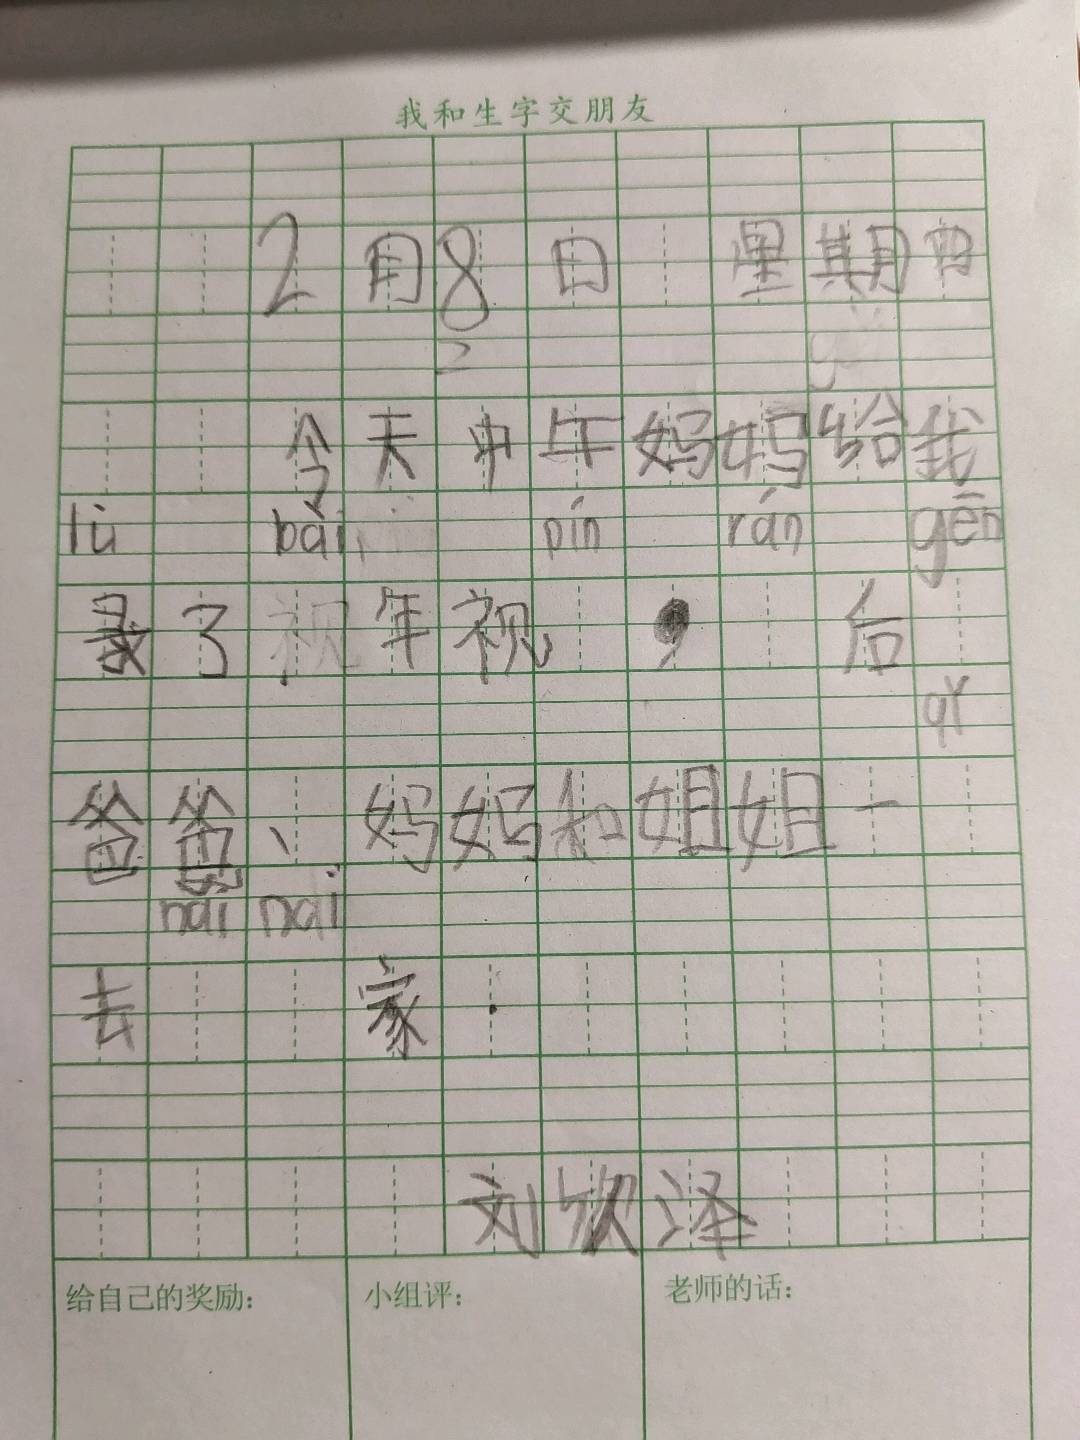 我和生字交朋友
2月8日 星期四
今天中午妈妈给我
lù bài pín rán gēn
录了视年视, 后
qǐ
爸爸、妈妈和姐姐一
nǎi nai
去 家.
刘欣泽
给自己的奖励: 小组评: 老师的话: